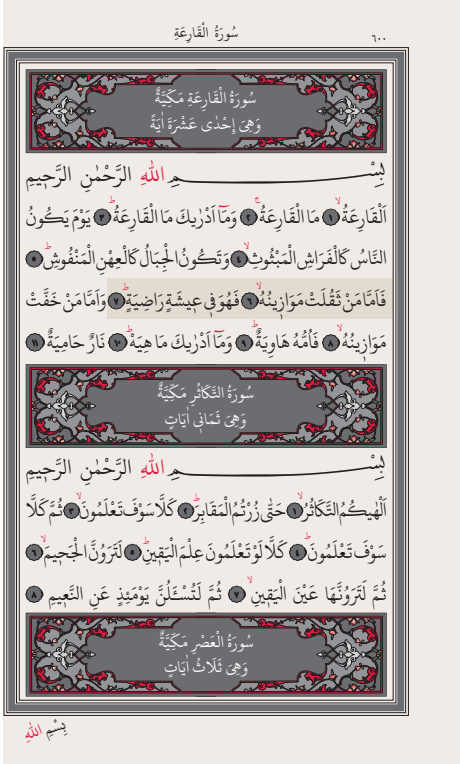 سُورَةُ الْقَارِعَةِ
٦٠٠
سُورَةُ الْقَارِعَةِ مَكِّيَّةٌ
وَهِيَ إِحْدٰى عَشْرَةَ اٰيَةً
بِسْمِ اللّٰهِ الرَّحْمٰنِ الرَّحِيمِ
اَلْقَارِعَةُۙ ١ مَا الْقَارِعَةُۚ ٢ وَمَٓا اَدْرٰيكَ مَا الْقَارِعَةُۜ ٣ يَوْمَ يَكُونُ
النَّاسُ كَالْفَرَاشِ الْمَبْثُوثِۙ ٤ وَتَكُونُ الْجِبَالُ كَالْعِهْنِ الْمَنْفُوشِۜ ٥
فَاَمَّا مَنْ ثَقُلَتْ مَوَازِينُهُۙ ٦ فَهُوَ فِي عِيشَةٍ رَاضِيَةٍۜ ٧ وَاَمَّا مَنْ خَفَّتْ
مَوَازِينُهُۙ ٨ فَاُمُّهُ هَاوِيَةٌۜ ٩ وَمَٓا اَدْرٰيكَ مَا هِيَهْۜ ١٠ نَارٌ حَامِيَةٌ ١١
سُورَةُ التَّكَاثُرِ مَكِّيَّةٌ
وَهِيَ ثَمَانِي اٰيَاتٍ
بِسْمِ اللّٰهِ الرَّحْمٰنِ الرَّحِيمِ
اَلْهٰيكُمُ التَّكَاثُرُۙ ١ حَتّٰى زُرْتُمُ الْمَقَابِرَۜ ٢ كَلَّا سَوْفَ تَعْلَمُونَۙ ٣ ثُمَّ كَلَّا
سَوْفَ تَعْلَمُونَۜ ٤ كَلَّا لَوْ تَعْلَمُونَ عِلْمَ الْيَقِينِۜ ٥ لَتَرَوُنَّ الْجَحِيمَۙ ٦
ثُمَّ لَتَرَوُنَّهَا عَيْنَ الْيَقِينِۙ ٧ ثُمَّ لَتُسْـَٔلُنَّ يَوْمَئِذٍ عَنِ النَّعِيمِ ٨
سُورَةُ الْعَصْرِ مَكِّيَّةٌ
وَهِيَ ثَلَاثُ اٰيَاتٍ
بِسْمِ اللّٰهِ